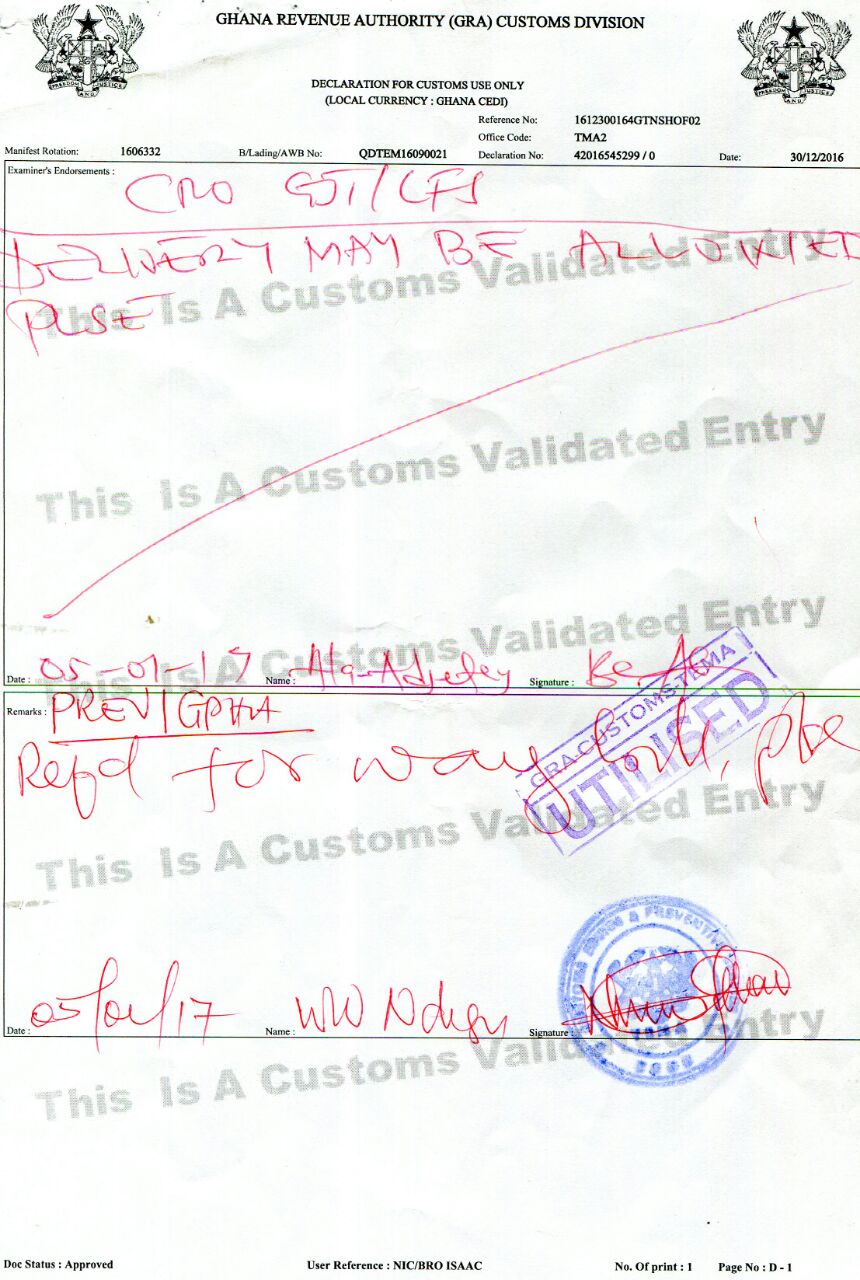 GHANA REVENUE AUTHORITY (GRA) CUSTOMS DIVISION
DECLARATION FOR CUSTOMS USE ONLY
(LOCAL CURRENCY : GHANA CEDI)
Reference No: 1612300164GTNSHOF02
Office Code: TMA2
Manifest Rotation: 1606332 B/Lading/AWB No: QDTEM16090021 Declaration No: 42016545299 / 0 Date: 30/12/2016
Examiner's Endorsements :
CRO GJT/CFS
DELIVERY MAY BE ALLOWED
PLSE
This Is A Customs Validated Entry
This Is A Customs Validated Entry
This Is A Customs Validated Entry
Date : 05-01-17 Name : Signature :
Remarks : PREV/GPHA
Refd for way forth, pse
GRA-CUSTOMS TEMA
UTILISED
This Is A Customs Validated Entry
Date : 05/01/17 Name : Signature :
This Is A Customs Validated Entry
Doc Status : Approved User Reference : NIC/BRO ISAAC No. Of print : 1 Page No : D - 1